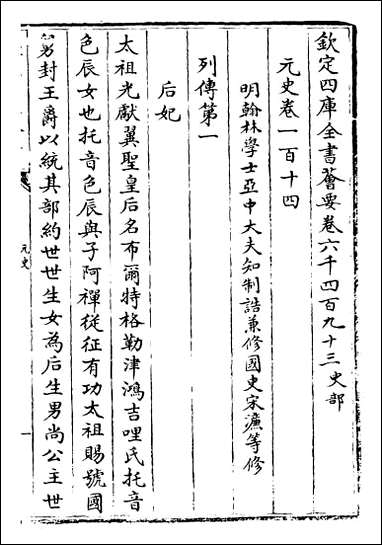 欽定四庫全書薈要卷六千四百九十三史部
元史卷一百十四
明翰林學士亞中大夫知制誥兼修國史宋濂等修
列傳第一
后妃
太祖光獻翼聖皇后名布爾特格勒津鴻吉哩氏托音
色辰女也托音色辰與子阿禪從征有功太祖賜號國
舅封王爵以統其部約世世生女為后生男尚公主世
元史
一